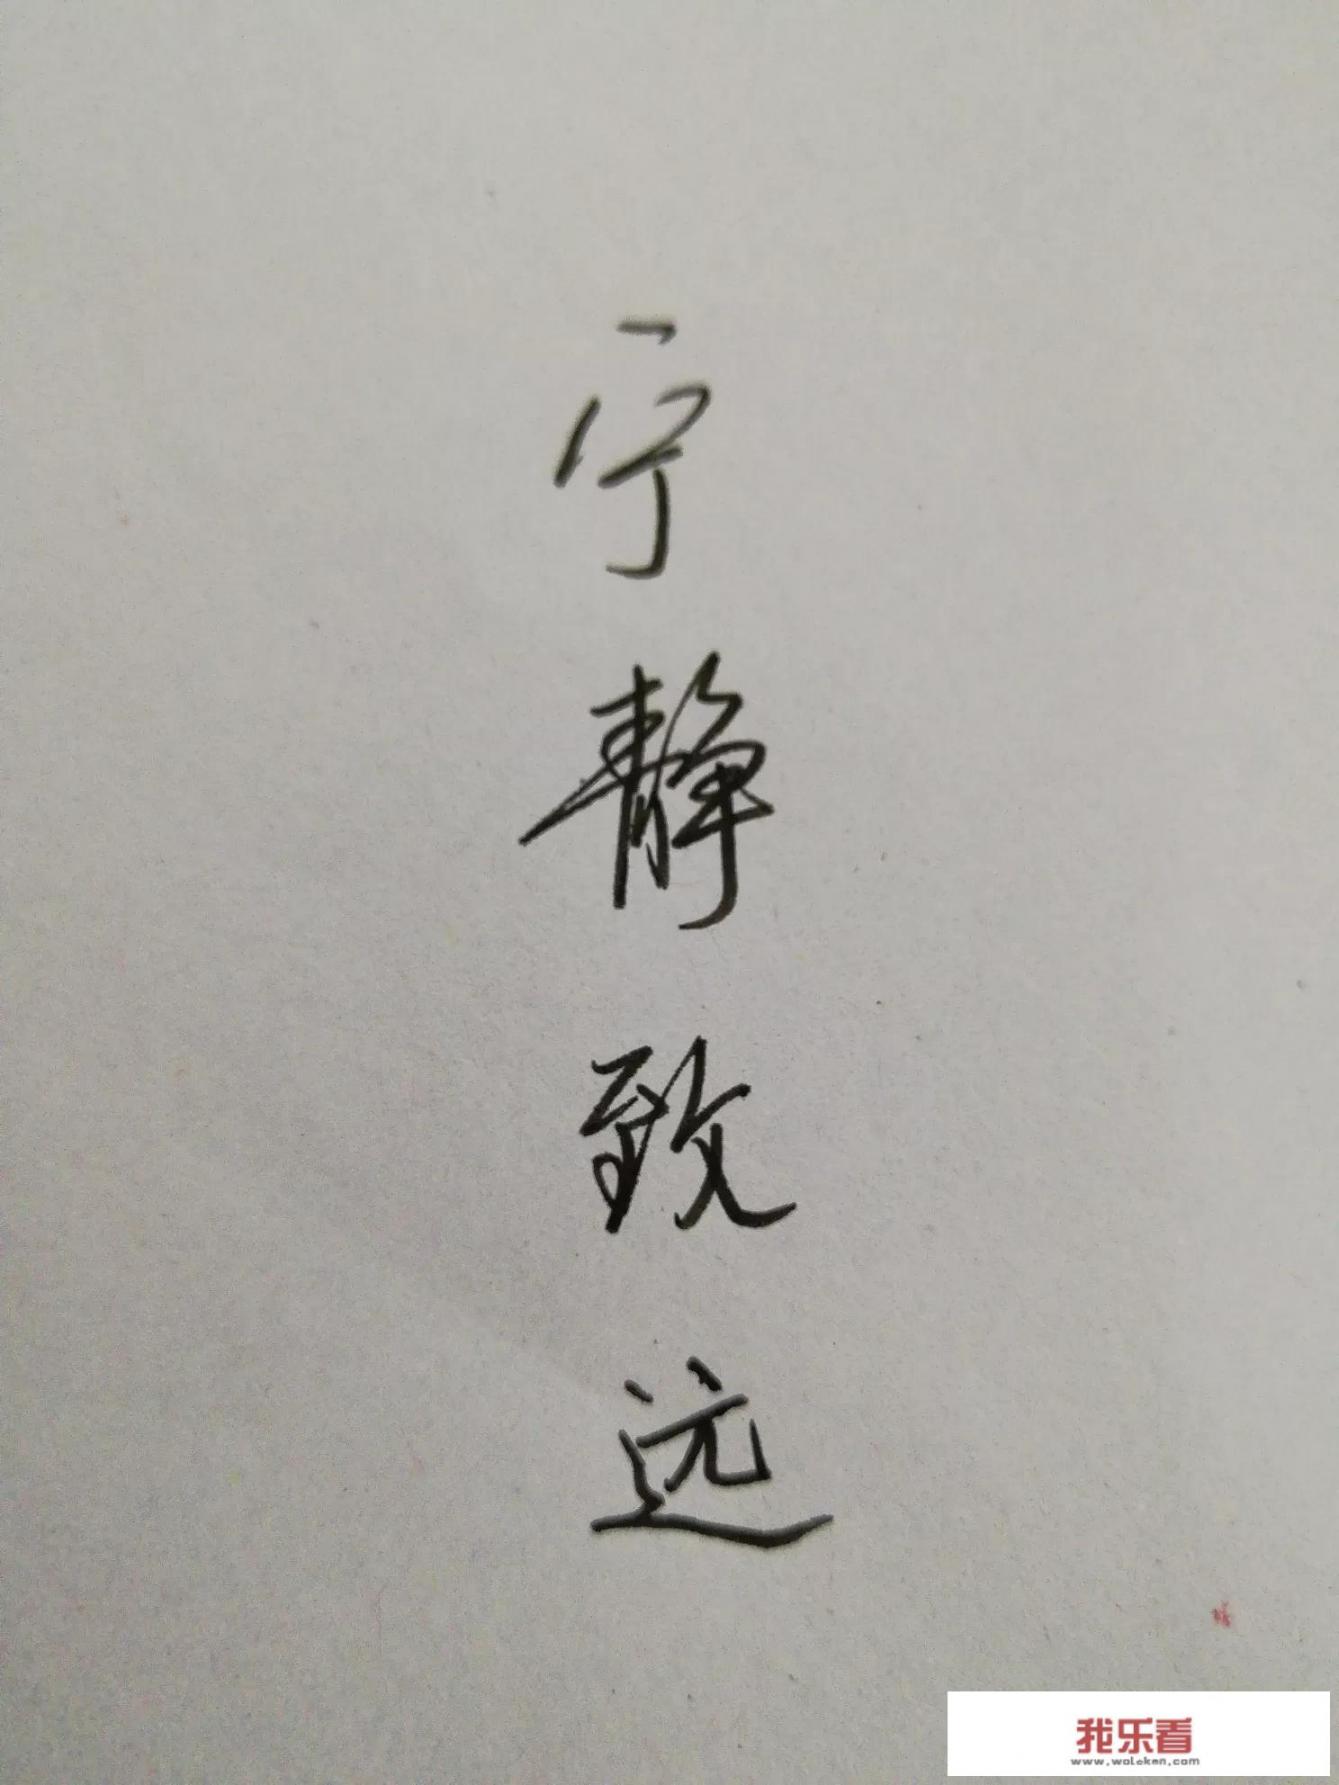 宁静致远
我乐看
www.walekan.com